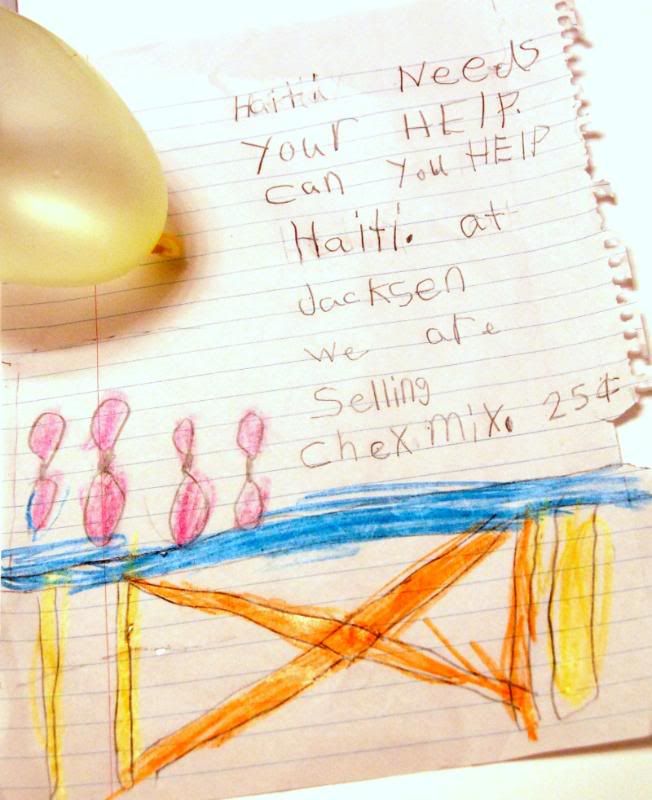 Haiti Needs
your HElP.
can you HElP
Haiti. at
Jacksen
we are
Selling
chex mix. 25¢